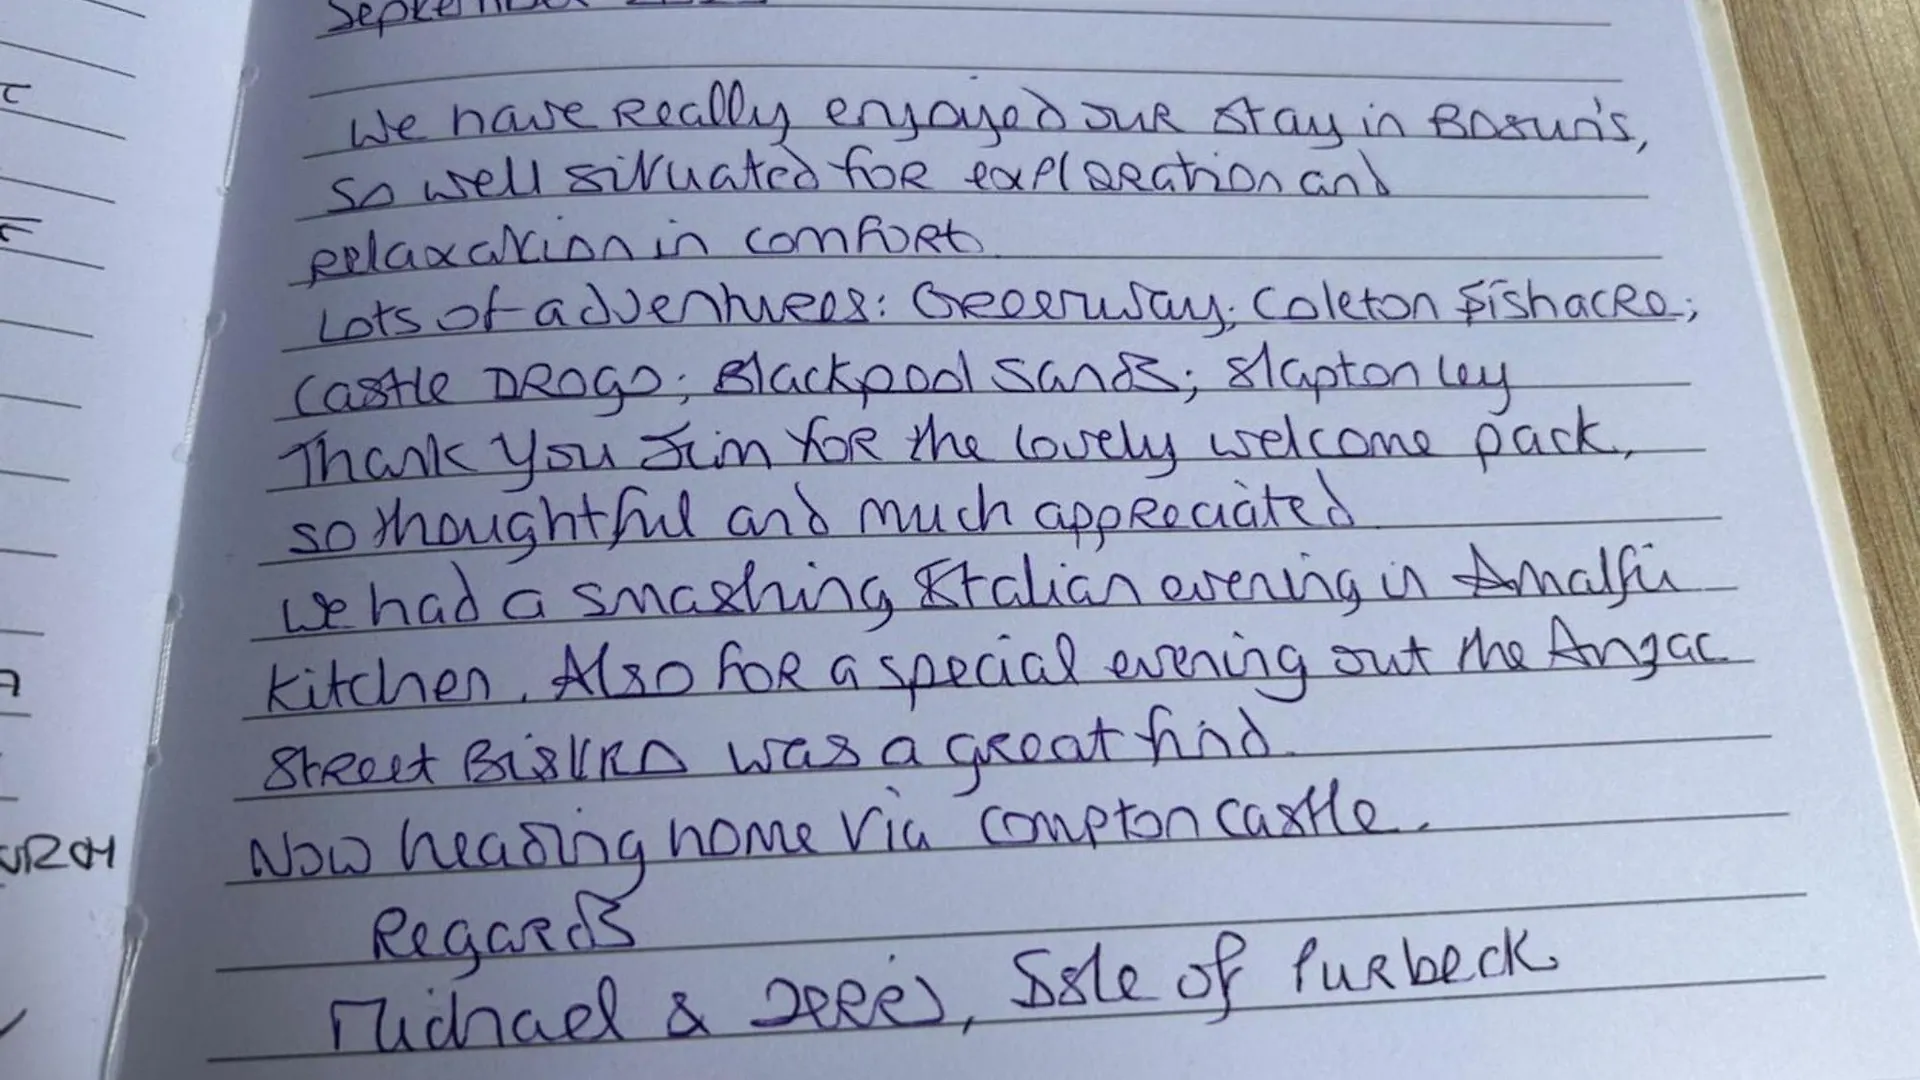 September
We have Really enjoyed our stay in Bosun's,
so well situated for exploration and
relaxation in comfort
Lots of adventures: Greenway; Coleton Fishacre;
Castle Drogo; Blackpool Sands; Slapton Ley
Thank you Jim for the lovely welcome pack,
so thoughtful and much appreciated
We had a smashing Italian evening in Amalfi
Kitchen. Also for a special evening out the Anzac
Street Bistro was a great find.
Now heading home via Compton Castle.
Regards
Michael & , Isle of Purbeck